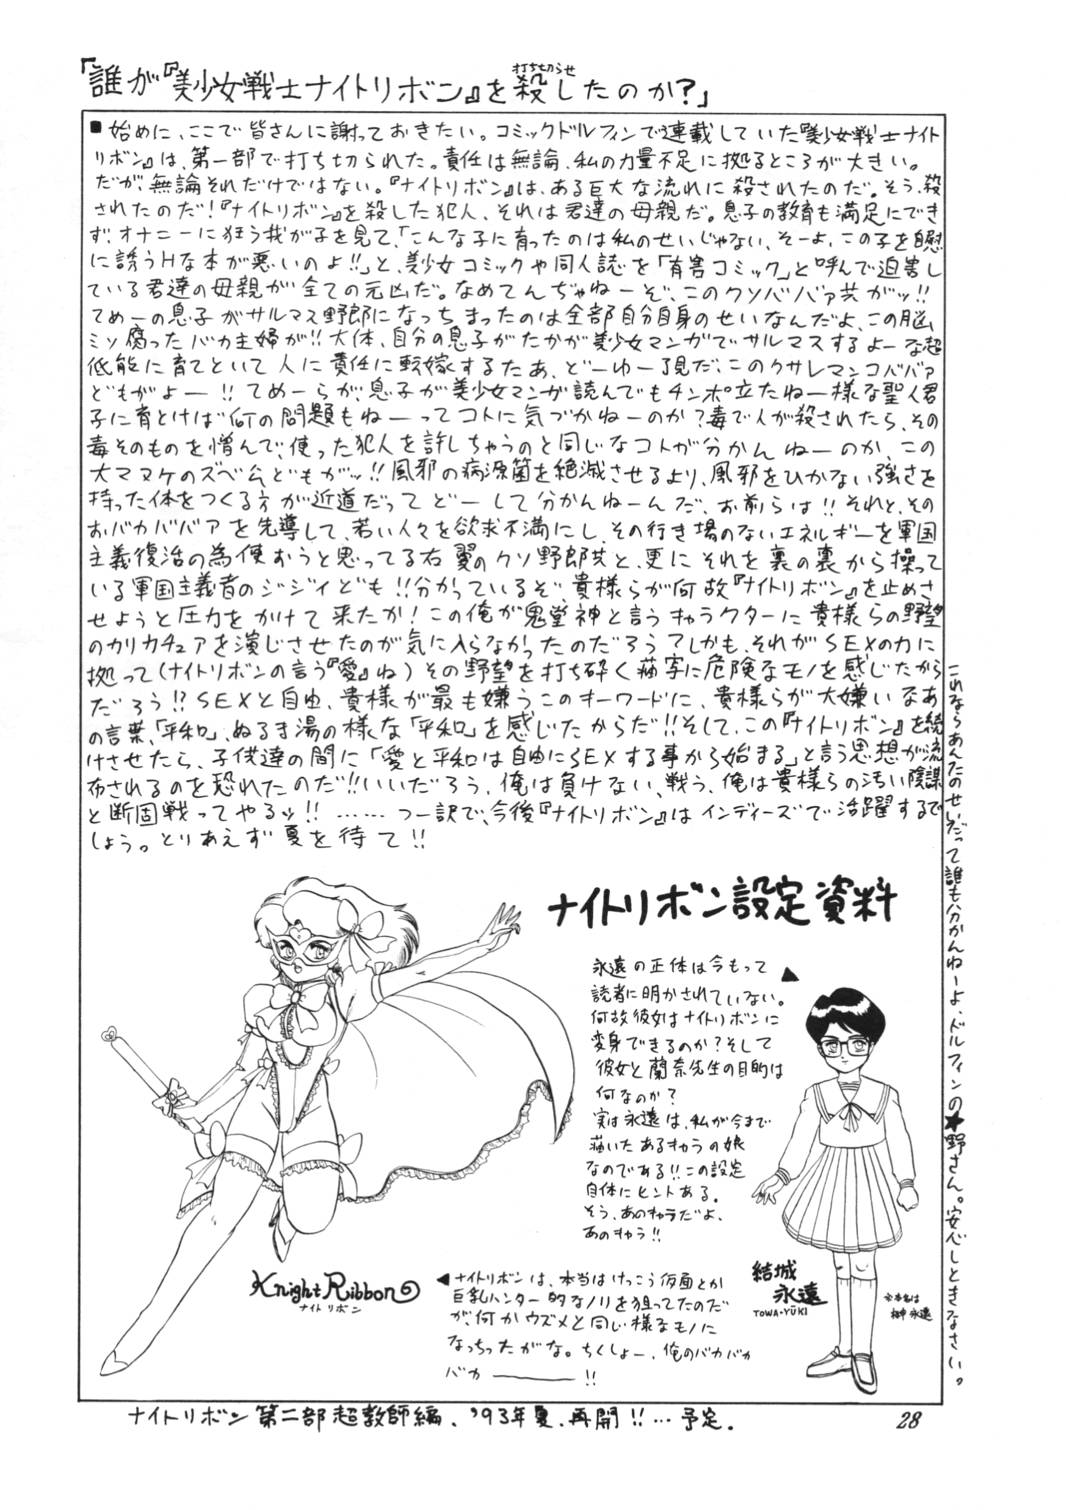 「誰が『美少女戦士ナイトリボン』を殺したのか?」
打ち切らせ
■始めに、ここで皆さんに謝っておきたい。コミックドルフィンで連載していた『美少女戦士ナイト
リボン』は、第一部で打ち切られた。責任は無論、私の力量不足に拠るところが大きい。
だが、無論それだけではない。『ナイトリボン』は、ある巨大な流れに殺されたのだ。そう、殺
されたのだ!『ナイトリボン』を殺した犯人、それは君達の母親だ。息子の教育も満足にでき
ず、オナニーに狂う我が子を見て、「こんな子に育ったのは私のせいじゃない、そーよ、この子を自慰
に誘うHな本が悪いのよ!!」と、美少女コミックや同人誌を「有害コミック」と呼んで迫害し
ている君達の母親が全ての元凶だ。なめてんぢゃねーぞ、このクソババァ共がッ!!
てめーの息子がサルマス野郎になっちまったのは全部自分自身のせいなんだよ、この脳
ミソ腐ったバカ主婦が!!大体、自分の息子がたかが美少女マンガでサルマスするよーな超
低能に育てといて人に責任に転嫁するたあ、どーゆー了見だ、このクサレマンコババァ
どもがよー!!てめーらが、息子が美少女マンガ読んでもチンポ立たねー様な聖人君
子に育とけば何の問題もねーってコトに気づかねーのか?毒で人が殺されたら、その
毒そのものを憎んで、使った犯人を許しちゃうのと同じなコトが分かんねーのか、この
大マヌケのズベ公どもがッ!!風邪の病源菌を絶滅させるより、風邪をひかない強さを
持った体をつくる方が近道だってどーして分かんねーんだ、お前らは!!それと、その
おバカババアを先導して、若い人々を欲求不満にし、その行き場のないエネルギーを軍国
主義復活の為使おうと思ってる右翼のクソ野郎共と、更にそれを裏の裏から操って
いる軍国主義者のジジイども!!分かっているぞ、貴様らが何故『ナイトリボン』を止めさ
せようと圧力をかけて来たか!この俺が鬼堂神と言うキャラクターに貴様らの野望
のカリカチュアを演じさせたのが気に入らなかったのだろう?しかも、それがSEXの力に
拠って(ナイトリボンの言う『愛』ね)その野望を打ち砕く描字に危険なモノを感じたから
だろう!?SEXと自由、貴様が最も嫌うこのキーワードに、貴様らが大嫌いなあ
の言葉、「平和」、ぬるま湯の様な「平和」を感じたからだ!!そして、この『ナイトリボン』を続
けさせたら、子供達の間に「愛と平和は自由にSEXする事から始まる」と言う思想が流
布されるのを恐れたのだ!!いいだろう、俺は負けない、戦う、俺は貴様らの汚い陰謀
と断固戦ってやるッ!! ……つー訳で、今後『ナイトリボン』はインディーズで活躍するで
しょう。とりあえず夏を待て!!
これならあんたのせいだって誰も分かんねーよ、ドルフィンの★野さん。安心しときなさい。
ナイトリボン設定資料
▲
永遠の正体は今もって
読者に明かされていない。
何故彼女はナイトリボンに
変身できるのか?そして
彼女と蘭奈先生の目的は
何なのか?
実は永遠は、私が今まで
描いたあるキャラの娘
なのである!!この設定
自体にヒントある。
そう、あのキャラだよ、
あのキャラ!!
結城
永遠
TOWA・YŪKI
☆本名は
榊 永遠
Knight Ribbon
ナイトリボン
◀ナイトリボンは、本当はけっこう仮面とか
巨乳ハンター的なノリを狙ってたのだ
が、何かウズメと同じ様なモノに
なっちったがな。ちくしょー、俺のバカバカ
バカ――――!!
ナイトリボン第二部超教師編、'93年夏、再開!!…予定。
28